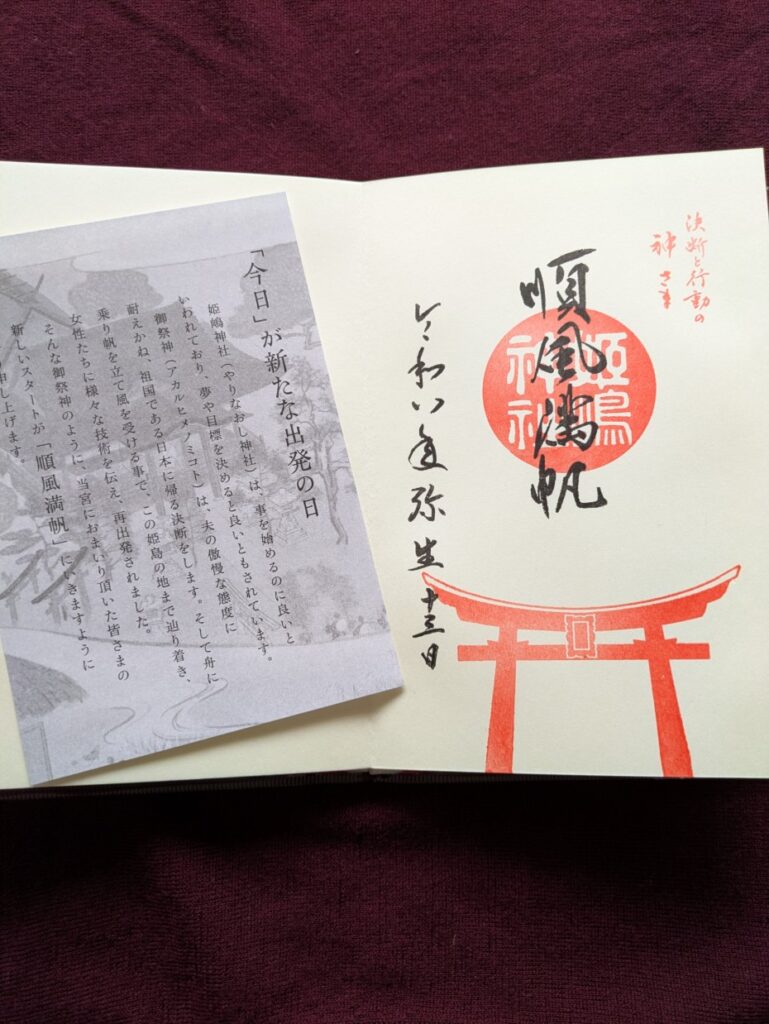 決断と行動の
神さま
順風満帆
姫嶋
神社
令和八年弥生十三日
「今日」が新たな出発の日
姫嶋神社（やりなおし神社）は、事を始めるのに良いと
いわれており、夢や目標を決めると良いともされています。
御祭神（アカルヒメノミコト）は、夫の傲慢な態度に
耐えかね、祖国である日本に帰る決断をします。そして舟に
乗り帆を立て風を受ける事で、この姫島の地まで辿り着き、
女性たちに様々な技術を伝え、再出発されました。
そんな御祭神のように、当宮におまいり頂いた皆さまの
新しいスタートが「順風満帆」にいきますように
申し上げます。